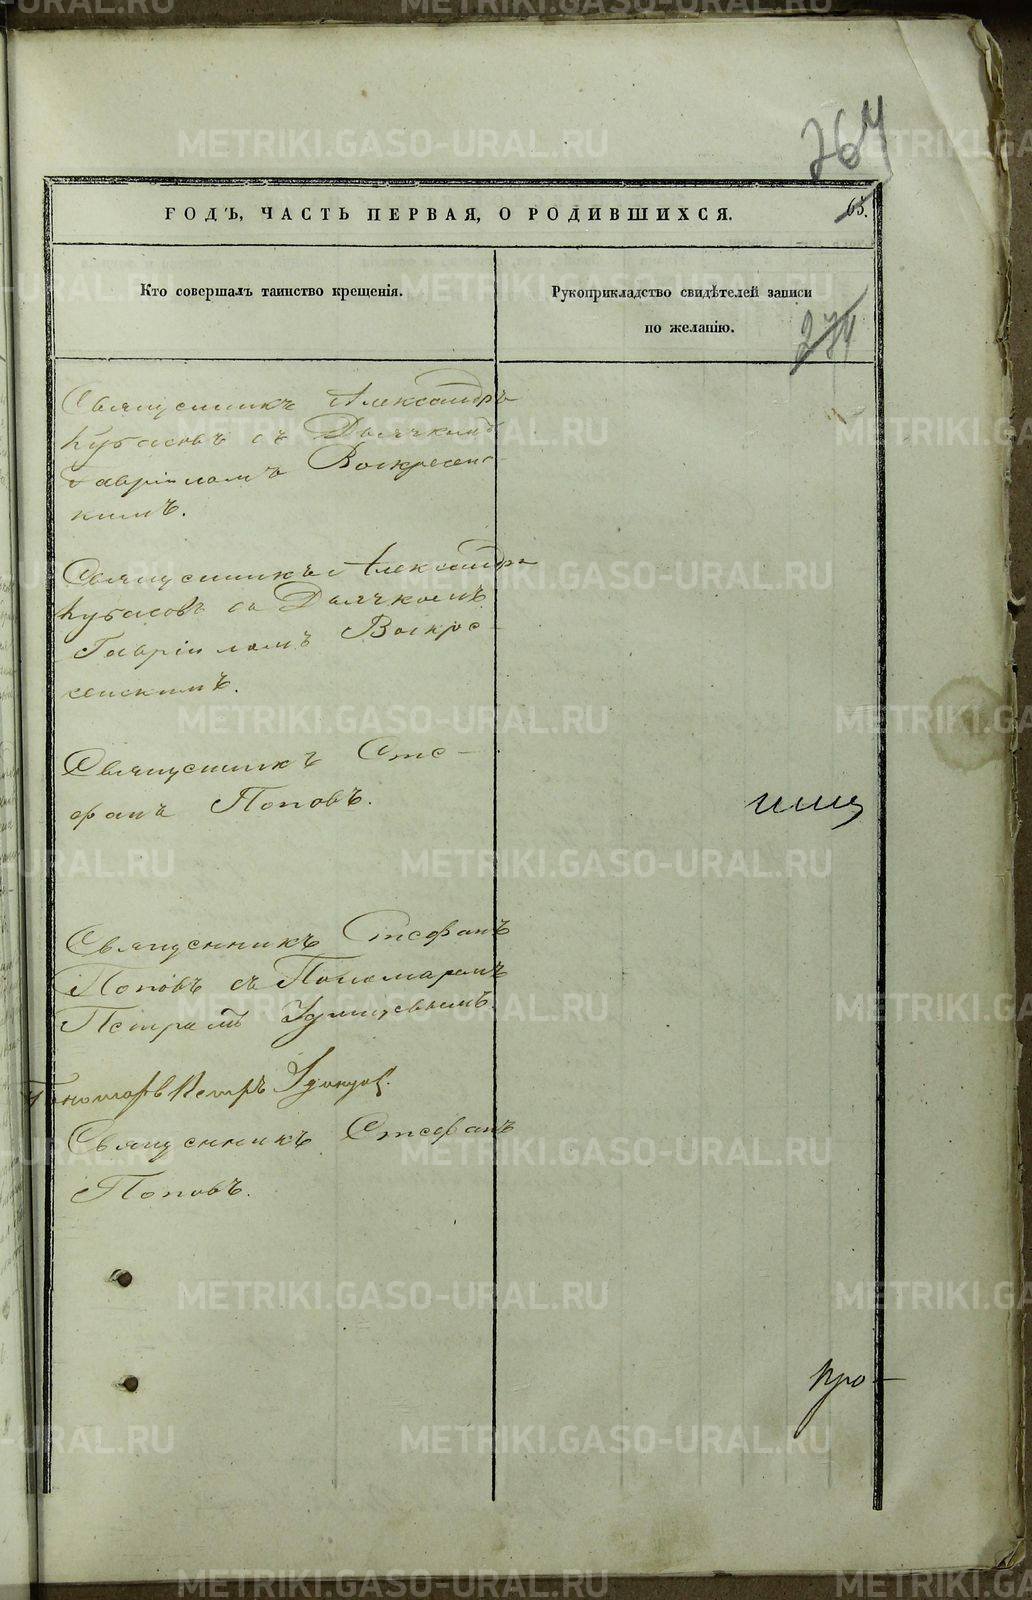 264
ГОДЪ, ЧАСТЬ ПЕРВАЯ, О РОДИВШИХСЯ.
65.
Кто совершалъ таинство крещенія.
Рукоприкладство свидѣтелей записи
по желанію.
274
Священникъ Александръ
Кубасовъ съ Дьячкомъ
Гавріиломъ Воскресенс
кимъ.
Священникъ Александръ
Кубасовъ съ Дьячкомъ
Гавріиломъ Воскре-
сенскимъ.
Священникъ Сте-
фанъ Поповъ.
Священникъ Стефанъ
Поповъ съ Пономаремъ
Петромъ Удинцовымъ.
Пономарь Петръ Удинцов.
Священникъ Стефанъ
Поповъ.
про-
METRIKI.GASO-URAL.RU